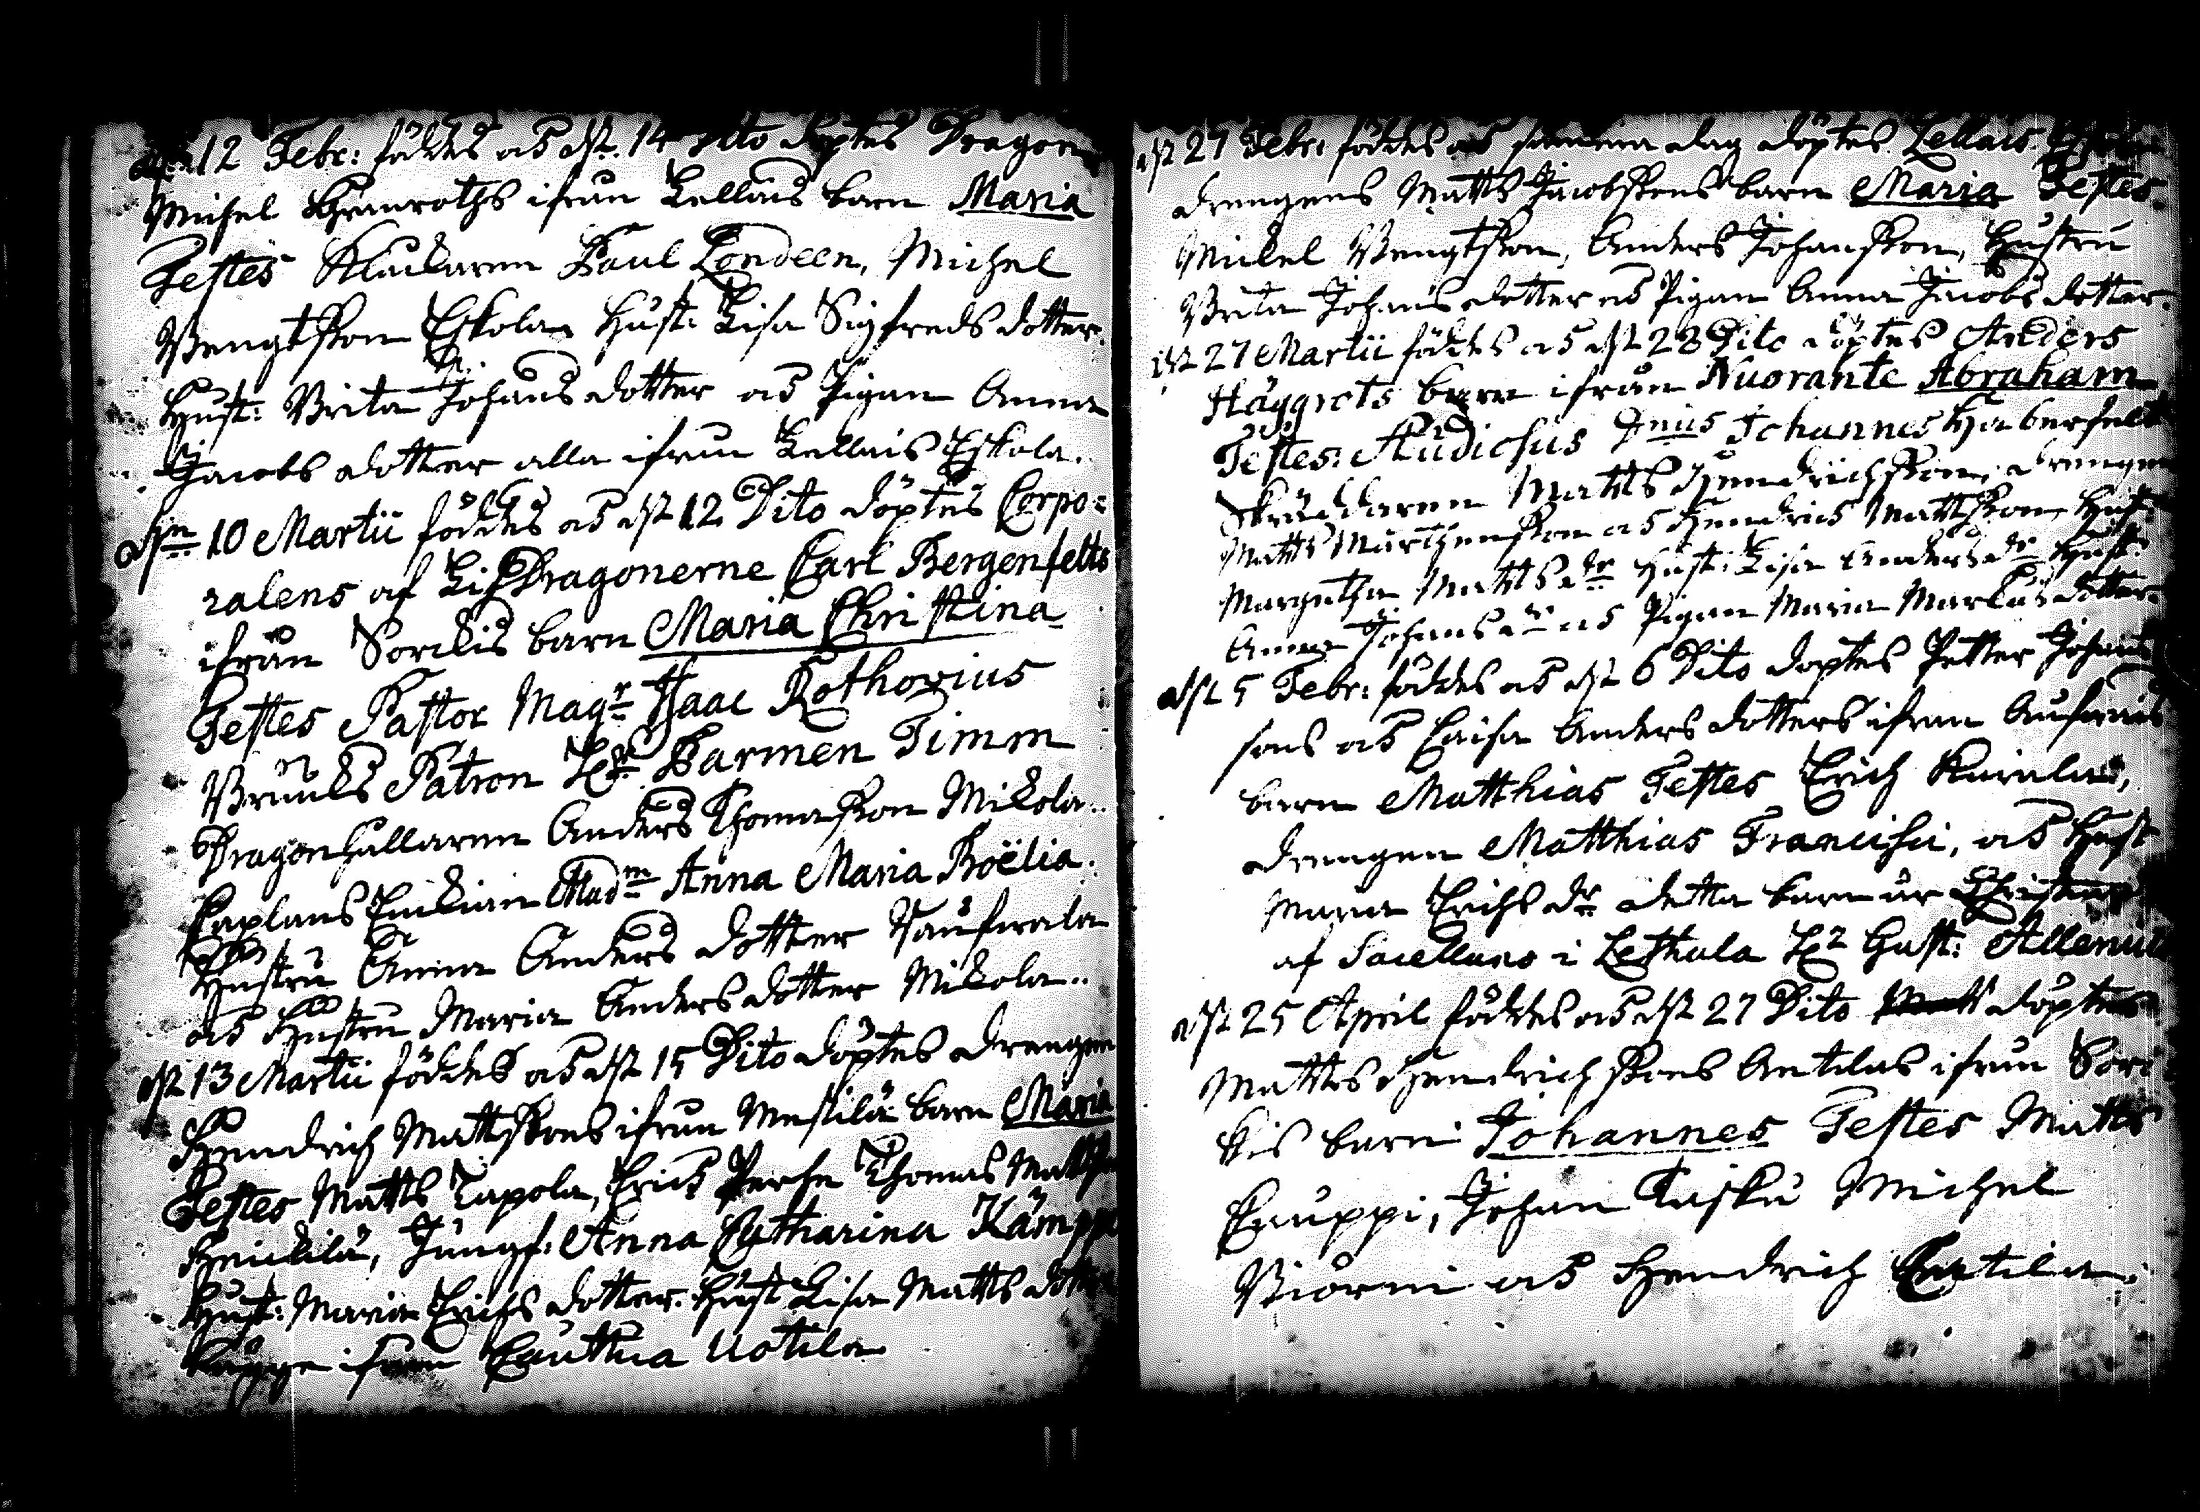 12 Febr: föddes och d. 14 Dito döptes Dragon
Michel ifrån Lellais barn Maria
Testes Klåckaren Paul Londeen, Michel
Bengtsson Eskola Hust: Lisa Sigfreds dotter
Hust: Brita Johans dotter och Pigan Anna
Jacobs dotter alla ifrån Lellais Eskola.
d. 10 Martii föddes och d. 12 Dito döptes Corpo=
ralens af Lif Dragonerne Carl Bergenfelts
ifrån Sorckis barn Maria Christina
Testes Pastor Magr Isaac Rothovius
Bruks Patron Hr Harmen Timm
Dragonhållaren Anders Thomasson Mikola.
Caplans Enckian Madm Anna Maria Boëlia.
Hustru Anna Anders dotter
och Hustru Maria Anders dotter Mikola.
d. 13 Martii föddes och d. 15 Dito döptes drengen
Hendrich Mattssons ifrån barn Maria
Testes Matts Tapola, Erich Thomas
Heickilä, Jungf: Anna Catharina
Hust: Maria Erichs dotter. Hust Lisa Matts dotter
ifrån Cauttua Uotila
d. 27 Febr: föddes och samma dag döptes Lellais
drengens Matts Jacobssons barn Maria Testes
Mickel Bengtsson, Anders Johansson, Hustru
Brita Johans dotter och Pigan Anna Jacobs dotter.
d. 27 Martii föddes och d. 28 Dito döptes Anders
Häggrots barn ifrån Nuorante Abraham
Testes: Studiosus Dnus Johannes Haberfelt
Skräddaren Matts Hendrichsson, drengen
Matts Mårthensson och Hendrich Mattsson, Hust:
Margetha Matts dr Hust: Lisa Anders dr Hust:
Anna Johans dr och Pigan Maria Markus dotter.
d. 5 Febr: föddes och d. 6 Dito döptes Petter Johans
sons och Caisa Anders dotters ifrån
barn Matthias Testes Erich
drengen Matthias Francisci, och Hust
Maria Erichs dr detta barn är Christnat
af Sacellano i Lethala Hr Gust: Allenius
d. 25 April föddes och d. 27 Dito döptes
Matts Hendrichssons Antilas ifrån Sorc
kis barn Johannes Testes Matts
Cauppi, Johan Tasku Michel
Biörni och Hendrich